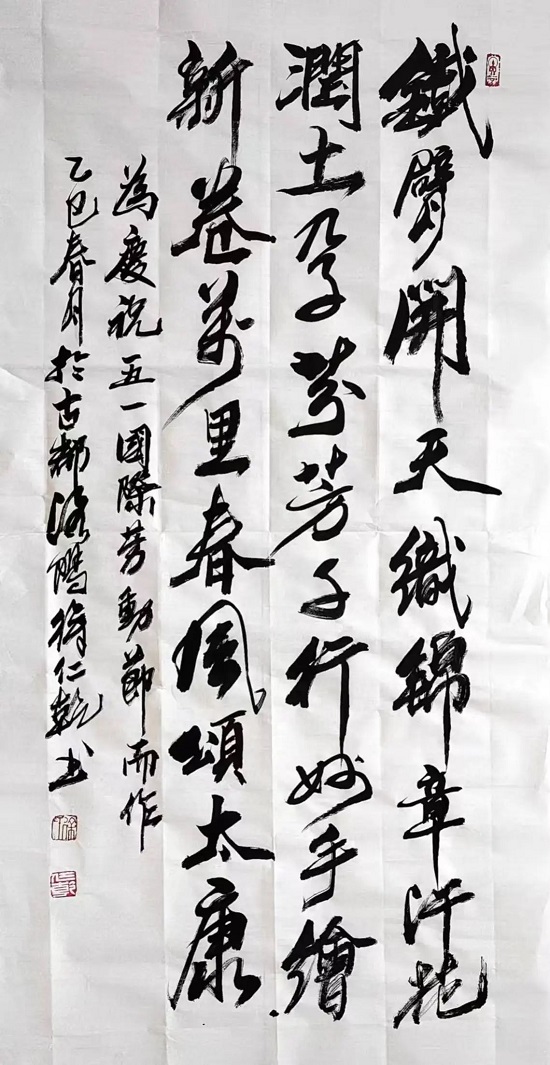 鐵臂開天織錦章汗花
潤土孕芬芳千行妙手繪
新卷萬里春風頌太康
為慶祝五一國際勞動節而作
乙巳春月於古都洛陽徐仁乾书